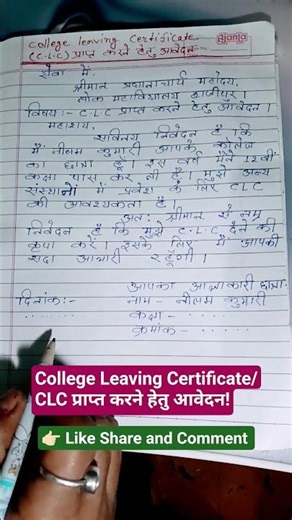 College leaving Certificate
Ajanta
(C.L.C) प्राप्त करने हेतु आवेदन
सेवा में,
श्रीमान प्रधानाचार्य महोदय,
लोक महाविद्यालय हाजीपुर।
विषय:- C.L.C प्राप्त करने हेतु आवेदन।
महाशय,
सविनय निवेदन है कि
मैं नीलम कुमारी आपके कॉलेज
का छात्रा हूँ। इस वर्ष मैंने 12वीं
कक्षा पास कर ली है। मुझे अन्य
संस्थानों में प्रवेश के लिए CLC
की आवश्यकता है।
अतः श्रीमान से नम्र
निवेदन है कि मुझे C.L.C देने की
कृपा करें। इसके लिए मैं आपकी
सदा आभारी रहूंगी।
आपका आज्ञाकारी छात्रा-
दिनांक:- नाम - नीलम कुमारी
........ कक्षा - .....
क्रमांक - .....
College Leaving Certificate/
CLC प्राप्त करने हेतु आवेदन!
👉🏻 Like Share and Comment